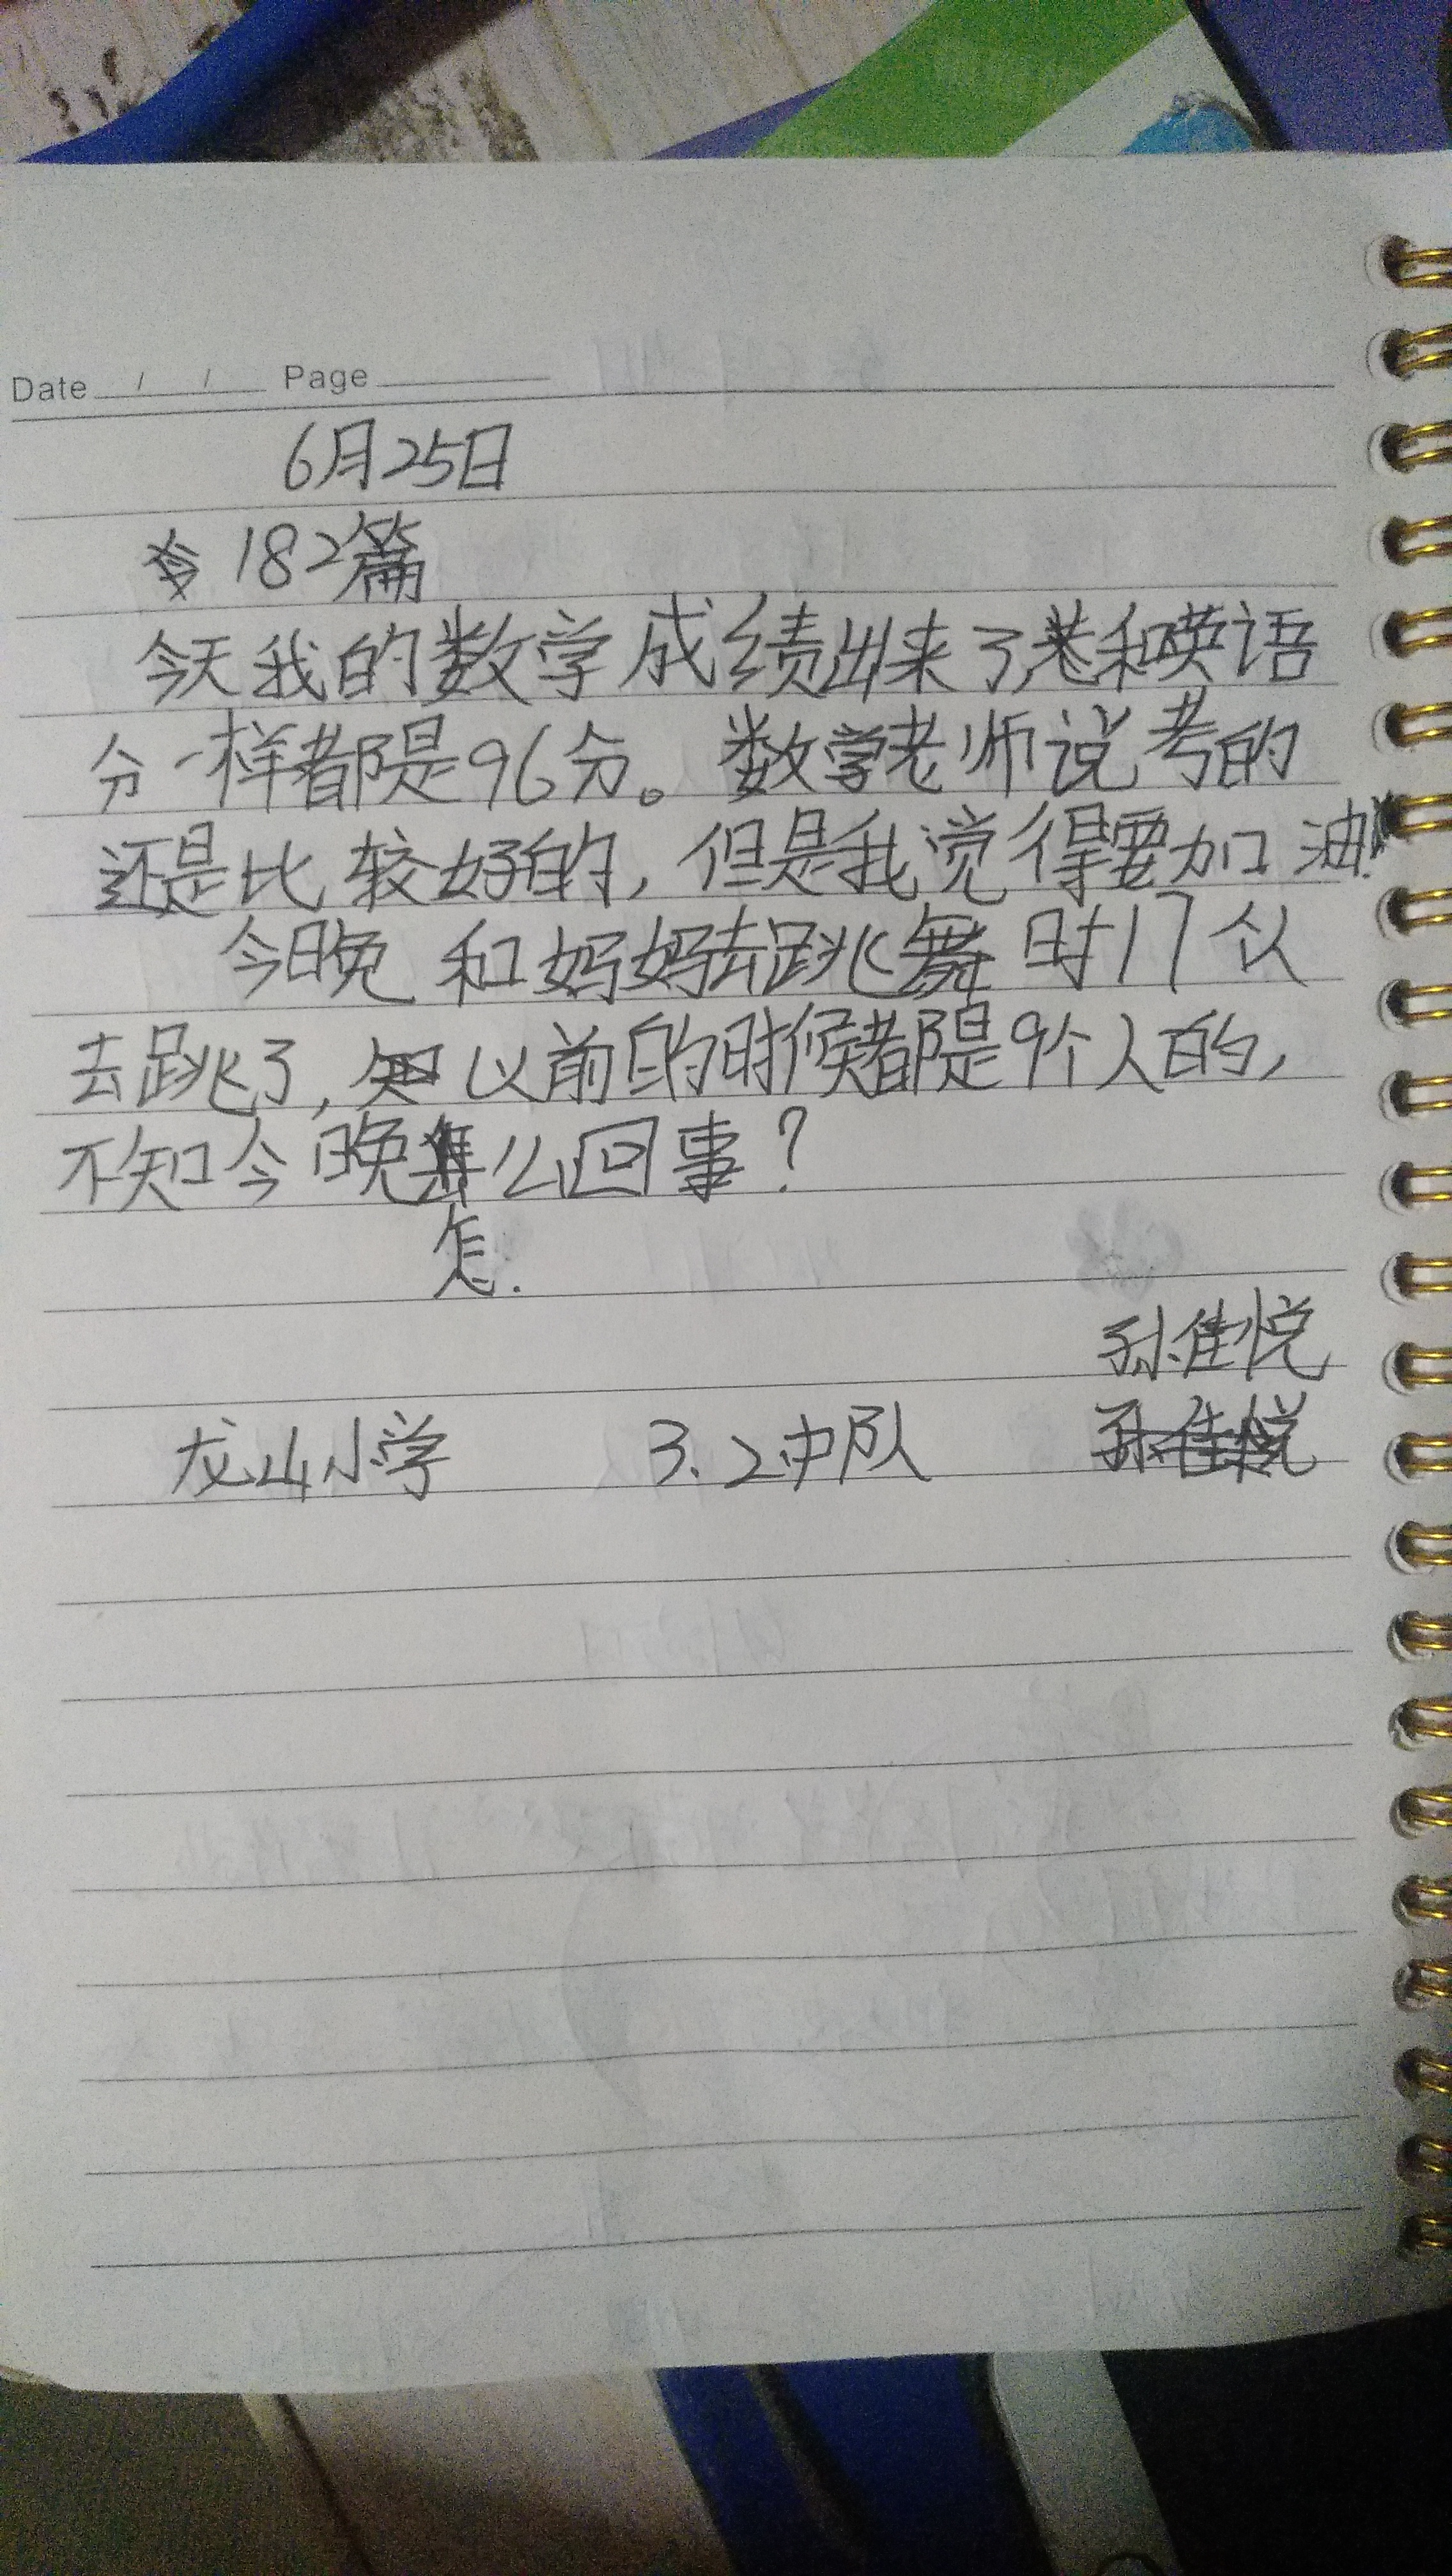 Date / / Page
6月25日
182篇
今天我的数学成绩出来了,和英语
分一样都是96分。数学老师说考的
还是比较好的,但是我觉得要加油!
今晚和妈妈去跳舞时17个人
去跳了,以前的时候都是9个人的,
不知今晚么回事?
怎.
孙佳悦
龙山小学 3.2中队 孙佳悦